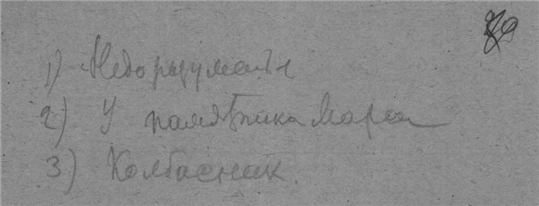 80
1) Недоразумѣн
2) У памятника Марса
3) Колбасник.